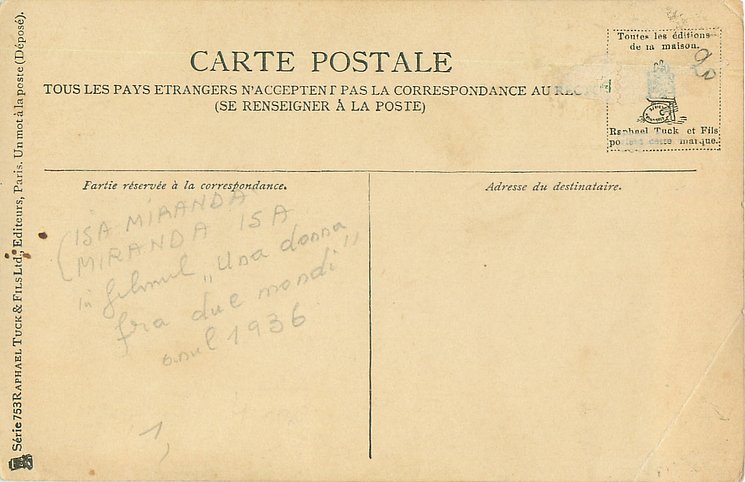 CARTE POSTALE
TOUS LES PAYS ETRANGERS N'ACCEPTENT PAS LA CORRESPONDANCE AU
(SE RENSEIGNER À LA POSTE)
Toutes les éditions
de la maison.
Raphael Tuck et Fils
portent cette marque.
Partie réservée à la correspondance.
Adresse du destinataire.
(ISA MIRANDA
MIRANDA ISA
în filmul „Una donna
fra due mondi"
anul 1936
1,
Série 753 RAPHAEL TUCK & FILS Ltd; Editeurs, Paris. Un mot à la poste (Déposé).